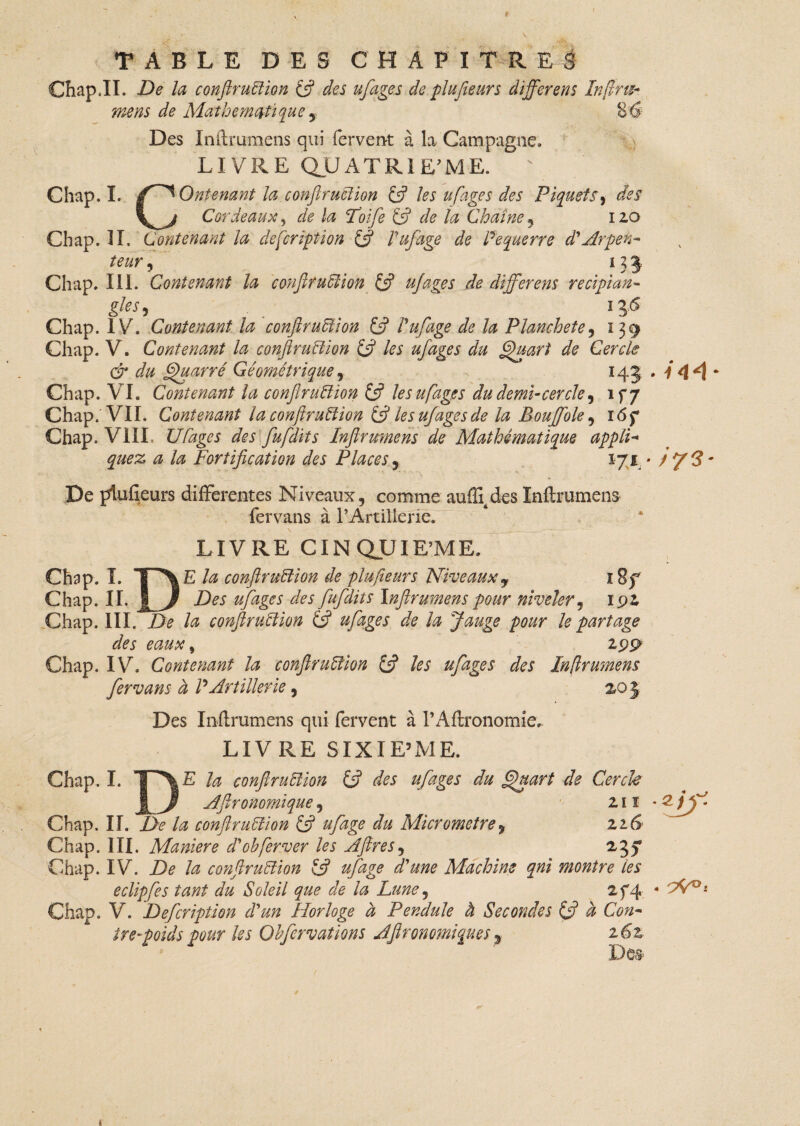 TABLE DES CHAPITRES
Chap.II. De la conſtruction & des uſages de pluſieurs differens Inſtru-
mens de Mathematique, 86
Des Inſtrumens qui ſervent à la Campagne.
LIVRE QUATRIE'ME.
Chap. I. COntenant la conſtruction & les uſages des Piquets, des
Cordeaux, de la Toiſe & de la Chaine, 120
Chap. II. Contenant la deſcription & l'uſage de l'equerre d'Arpen-
teur, 133
Chap. III. Contenant la conſtruction & uſages de differens recipian-
gles, 136
Chap. IV. Contenant la conſtruction & l'uſage de la Planchete, 139
Chap. V. Contenant la conſtruction & les uſages du Quart de Cercle
& du Quarré Géométrique, 143 . 144 .
Chap. VI. Contenant la conſtruction & les uſages du demi-cercle, 157
Chap. VII. Contenant la conſtruction & les uſages de la Bouſſole, 165
Chap. VIII. Uſages des ſuſdits Inſtrumens de Mathématique appli-
quez a la Fortification des Places, 171 . 173 .
De pluſieurs differentes Niveaux, comme auſſi des Inſtrumens
ſervans à l'Artillerie.
LIVRE CINQUIE'ME.
Chap. I. DE la conſtruction de pluſieurs Niveaux, 185
Chap. II. Des uſages des ſuſdits Inſtrumens pour niveler, 192
Chap. III. De la conſtruction & uſages de la Jauge pour le partage
des eaux, 299
Chap. IV. Contenant la conſtruction & les uſages des Inſtrumens
ſervans à l'Artillerie, 203
Des Inſtrumens qui ſervent à l'Aſtronomie.
LIVRE SIXIE'ME.
Chap. I. DE la conſtruction & des uſages du Quart de Cercle
Aſtronomique, 211 . 215.
Chap. II. De la conſtruction & uſage du Micrometre, 226
Chap. III. Maniere d'obſerver les Aſtres, 235
Chap. IV. De la conſtruction & uſage d'une Machine qni montre les
eclipſes tant du Soleil que de la Lune, 254 .
Chap. V. Deſcription d'un Horloge à Pendule à Secondes & à Con-
tre-poids pour les Obſervations Aſtronomiques, 262
Des